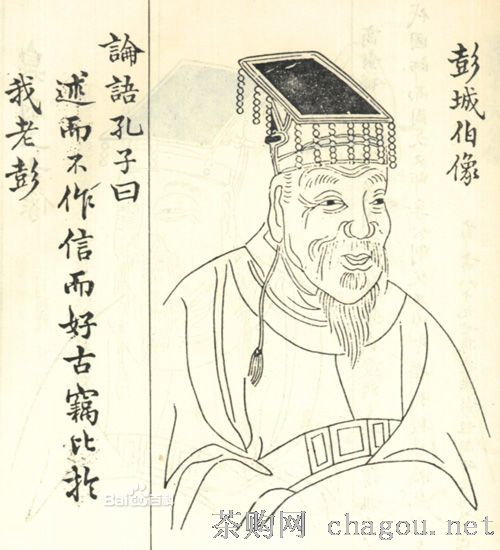 彭城伯像
論語孔子曰
述而不作信而好古竊比於
我老彭
Baidu百科
茶购网 chagou.net